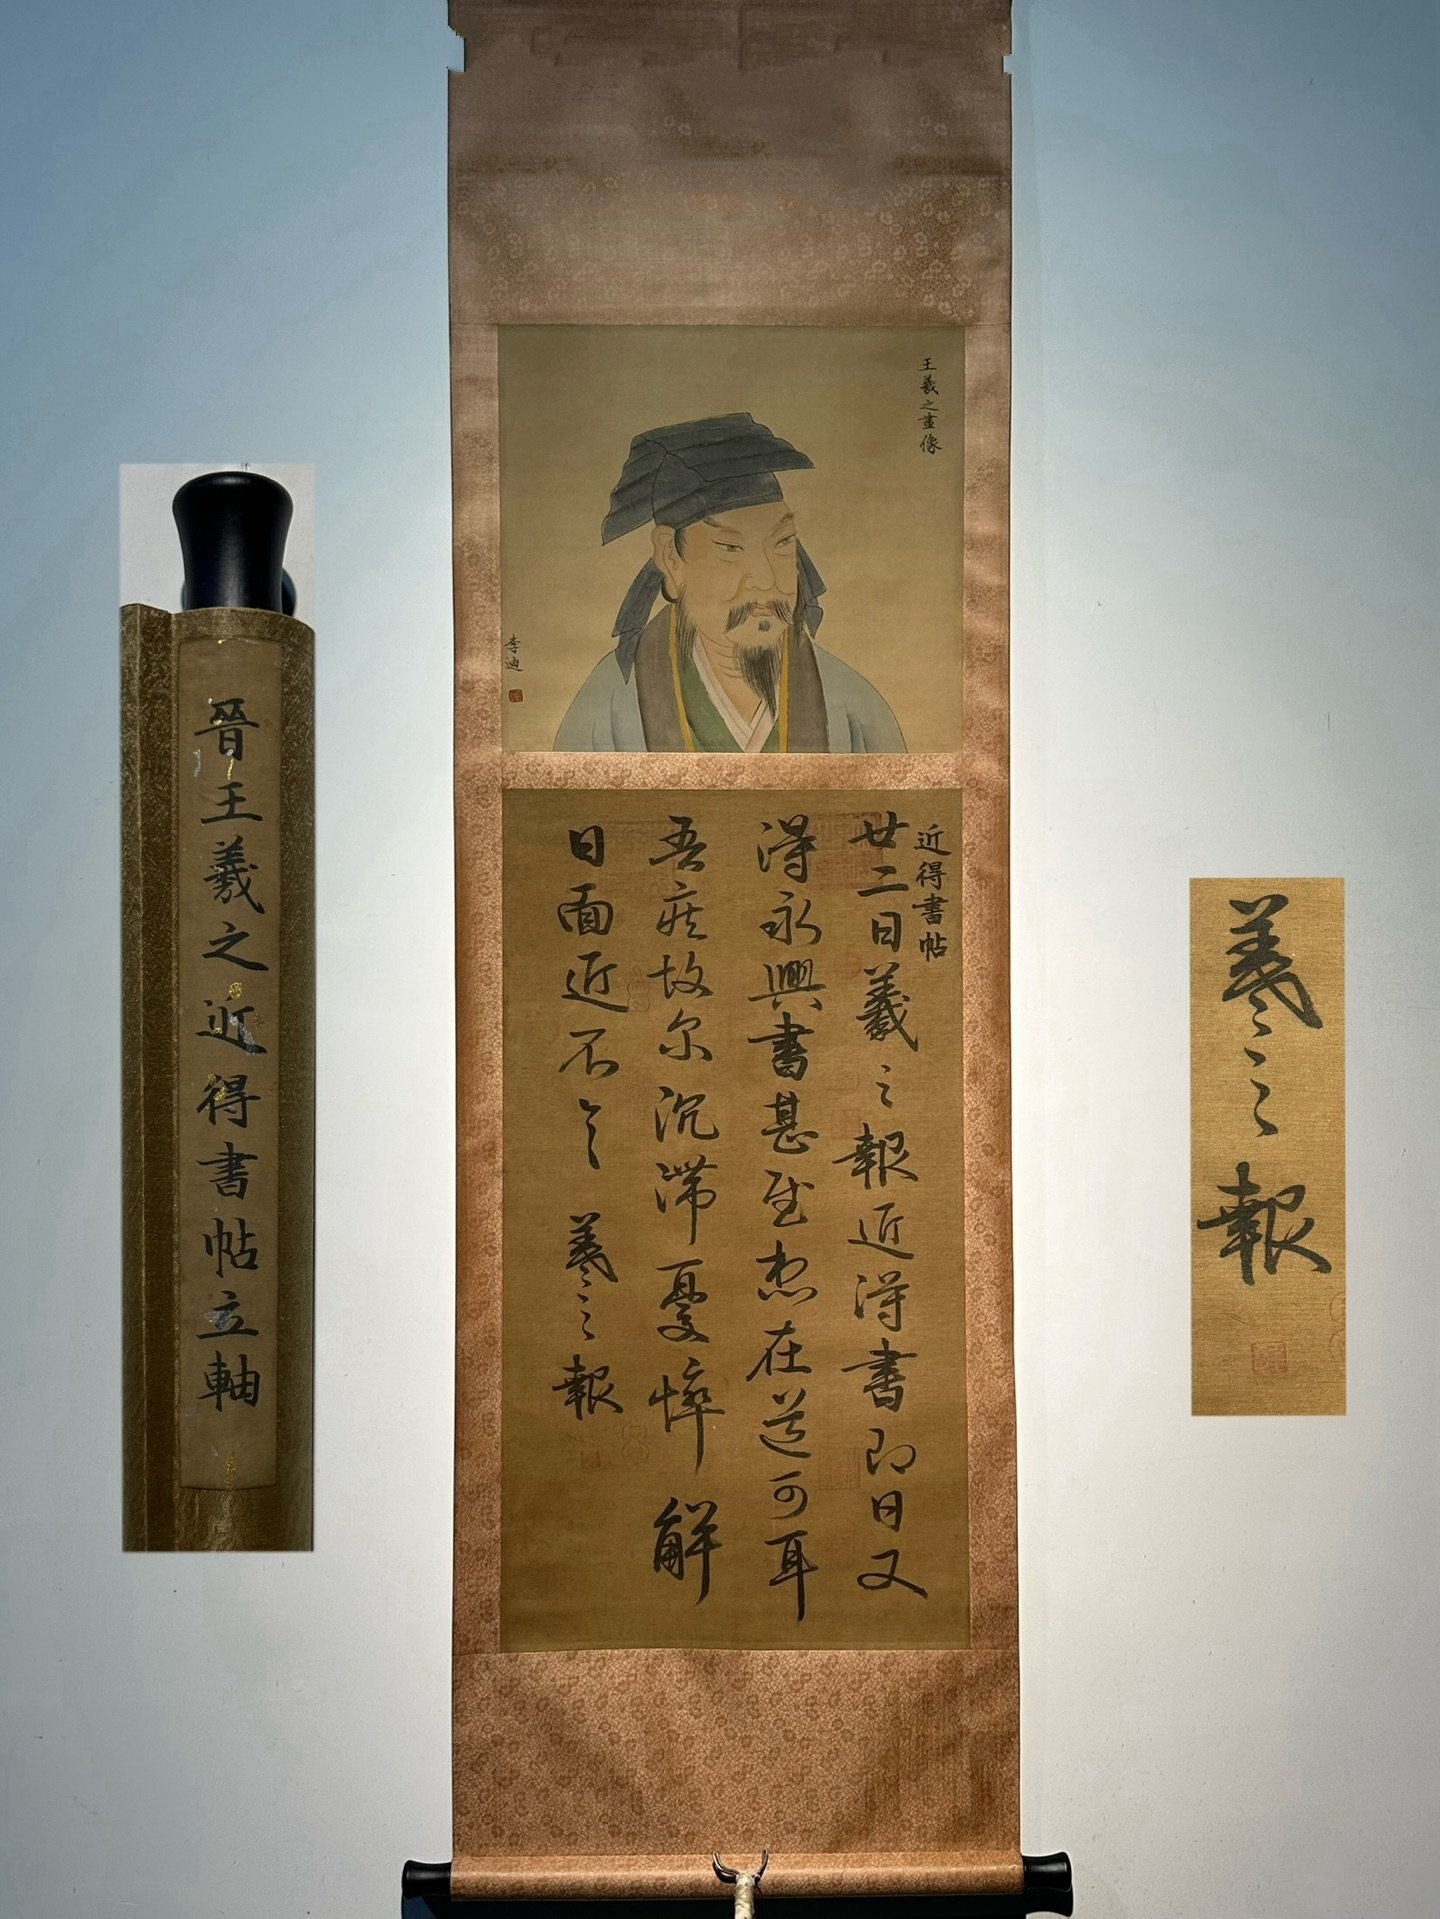 晉王羲之近得書帖立軸
王羲之畫像
李迪
近得書帖
廿二日羲之報近得書即日又
得永興書甚慰想在道可耳
吾疾故尔沉滯憂悴解
日面近不具羲之報
羲之報